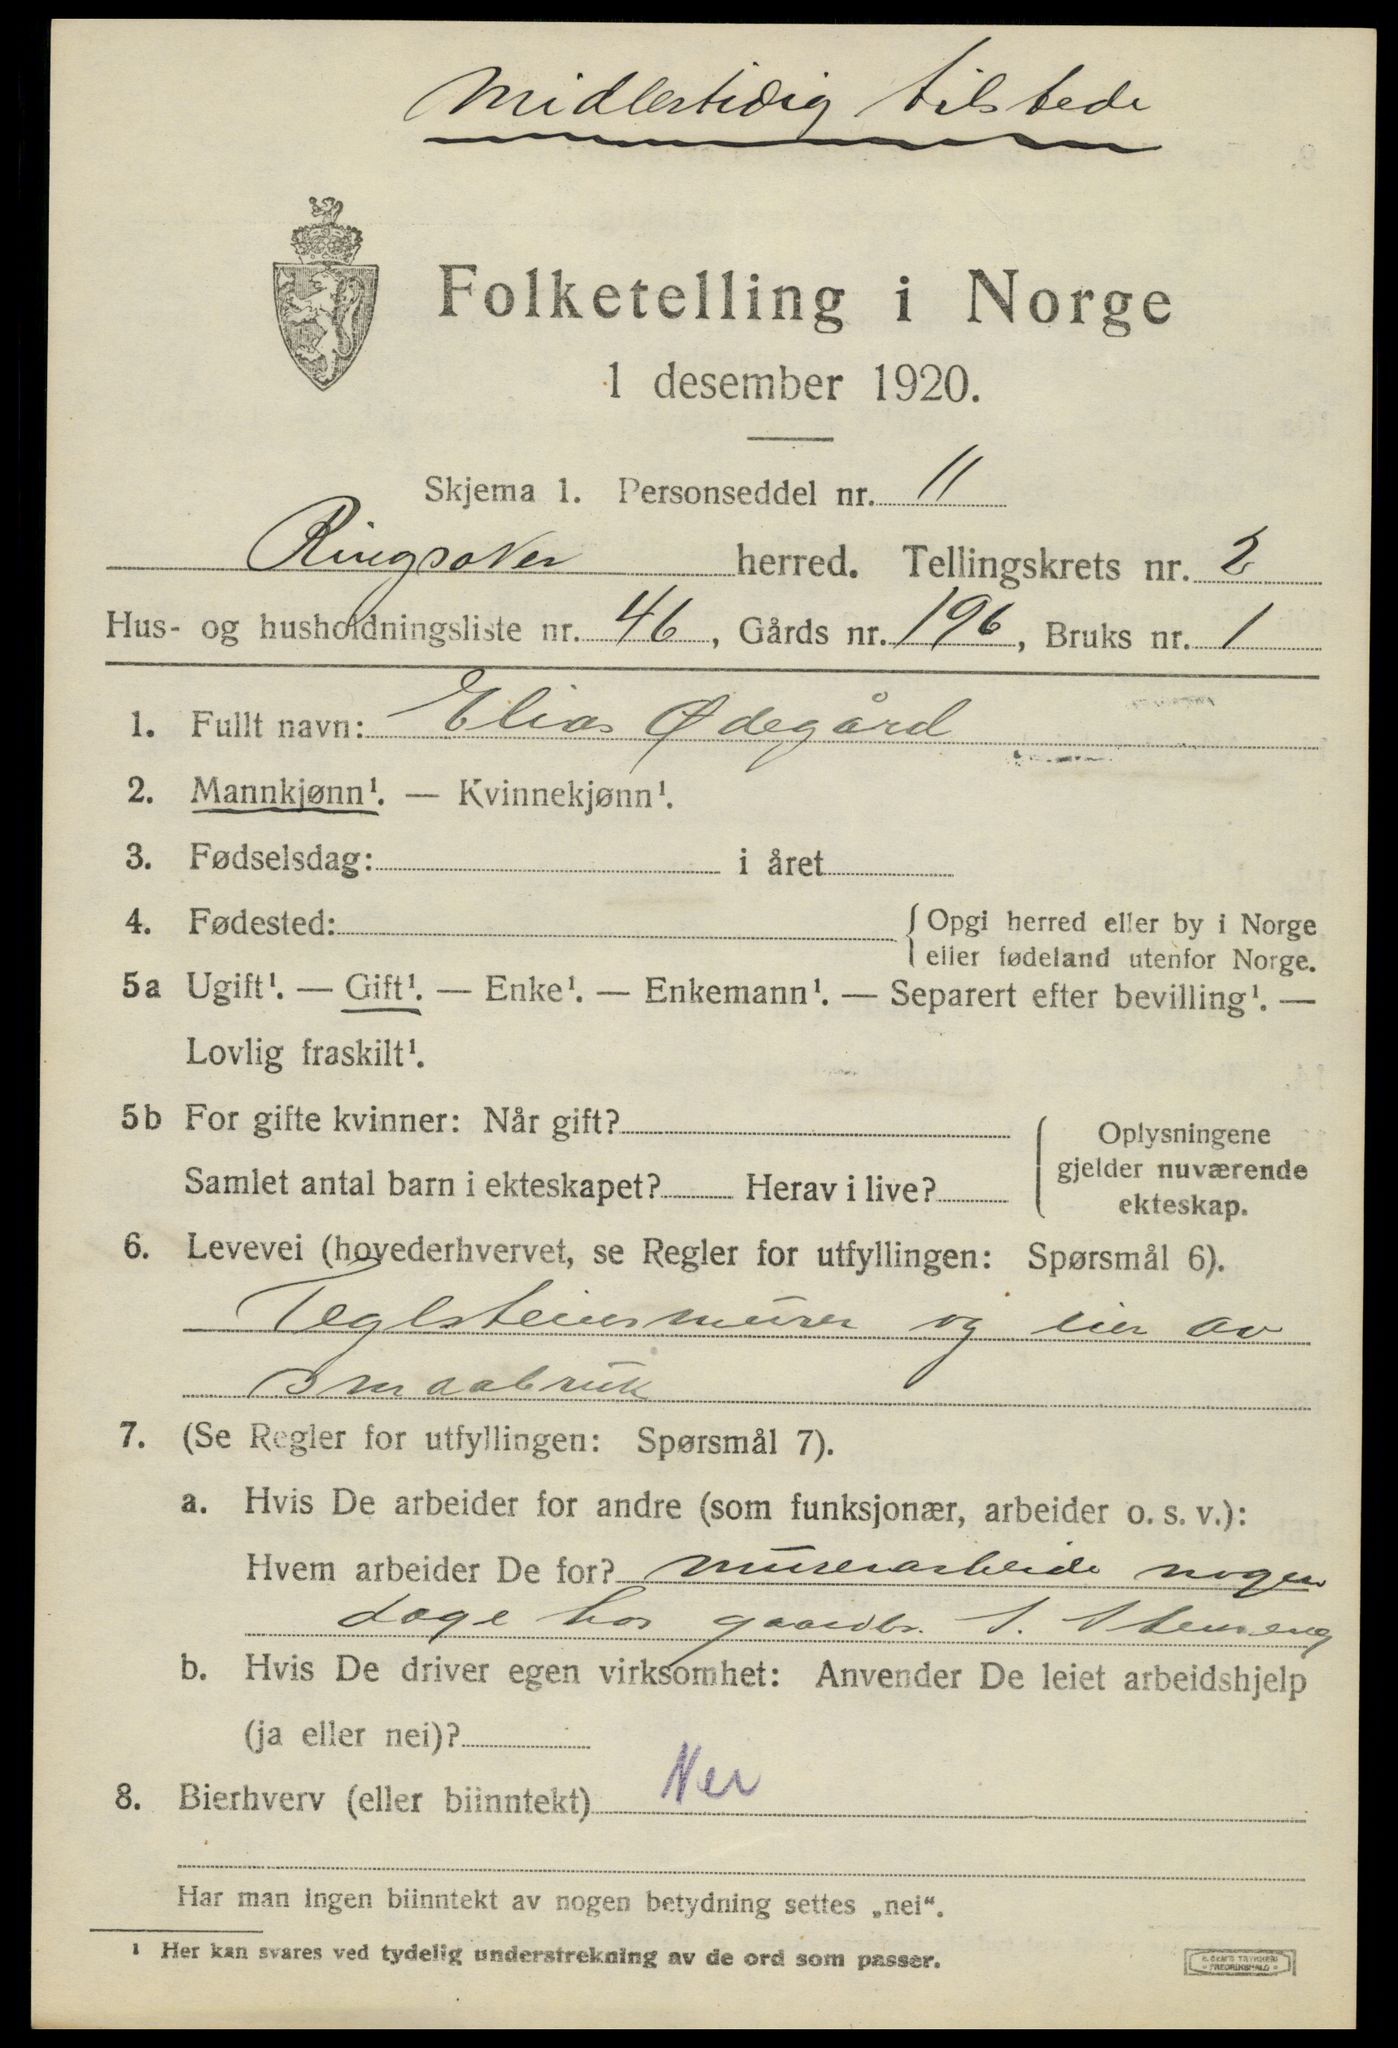 Midlertidig tilstede
Folketelling i Norge
1 desember 1920.
Skjema 1. Personseddel nr. 11
Ringsaker herred. Tellingskrets nr. 2
Hus- og husholdningsliste nr. 46, Gårds nr. 196, Bruks nr. 1
1. Fullt navn: Elias Ødegård
2. Mannkjønn¹. — Kvinnekjønn¹.
3. Fødselsdag: i året
4. Fødested: { Opgi herred eller by i Norge
eller fødeland utenfor Norge.
5a Ugift¹. — Gift¹. — Enke¹. — Enkemann¹. — Separert efter bevilling¹. —
Lovlig fraskilt¹.
5b For gifte kvinner: Når gift?
Samlet antal barn i ekteskapet? Herav i live?
Oplysningene
gjelder nuværende
ekteskap.
6. Levevei (hovederhvervet, se Regler for utfyllingen: Spørsmål 6).
Teglsteinsmurer og eier av
smaabruk
7. (Se Regler for utfyllingen: Spørsmål 7).
a. Hvis De arbeider for andre (som funksjonær, arbeider o. s. v.):
Hvem arbeider De for? murerarbeide nogen
dage hos gaardbr.
b. Hvis De driver egen virksomhet: Anvender De leiet arbeidshjelp
(ja eller nei)?
8. Bierhverv (eller biinntekt) Nei
Har man ingen biinntekt av nogen betydning settes „nei“.
¹ Her kan svares ved tydelig understrekning av de ord som passer.